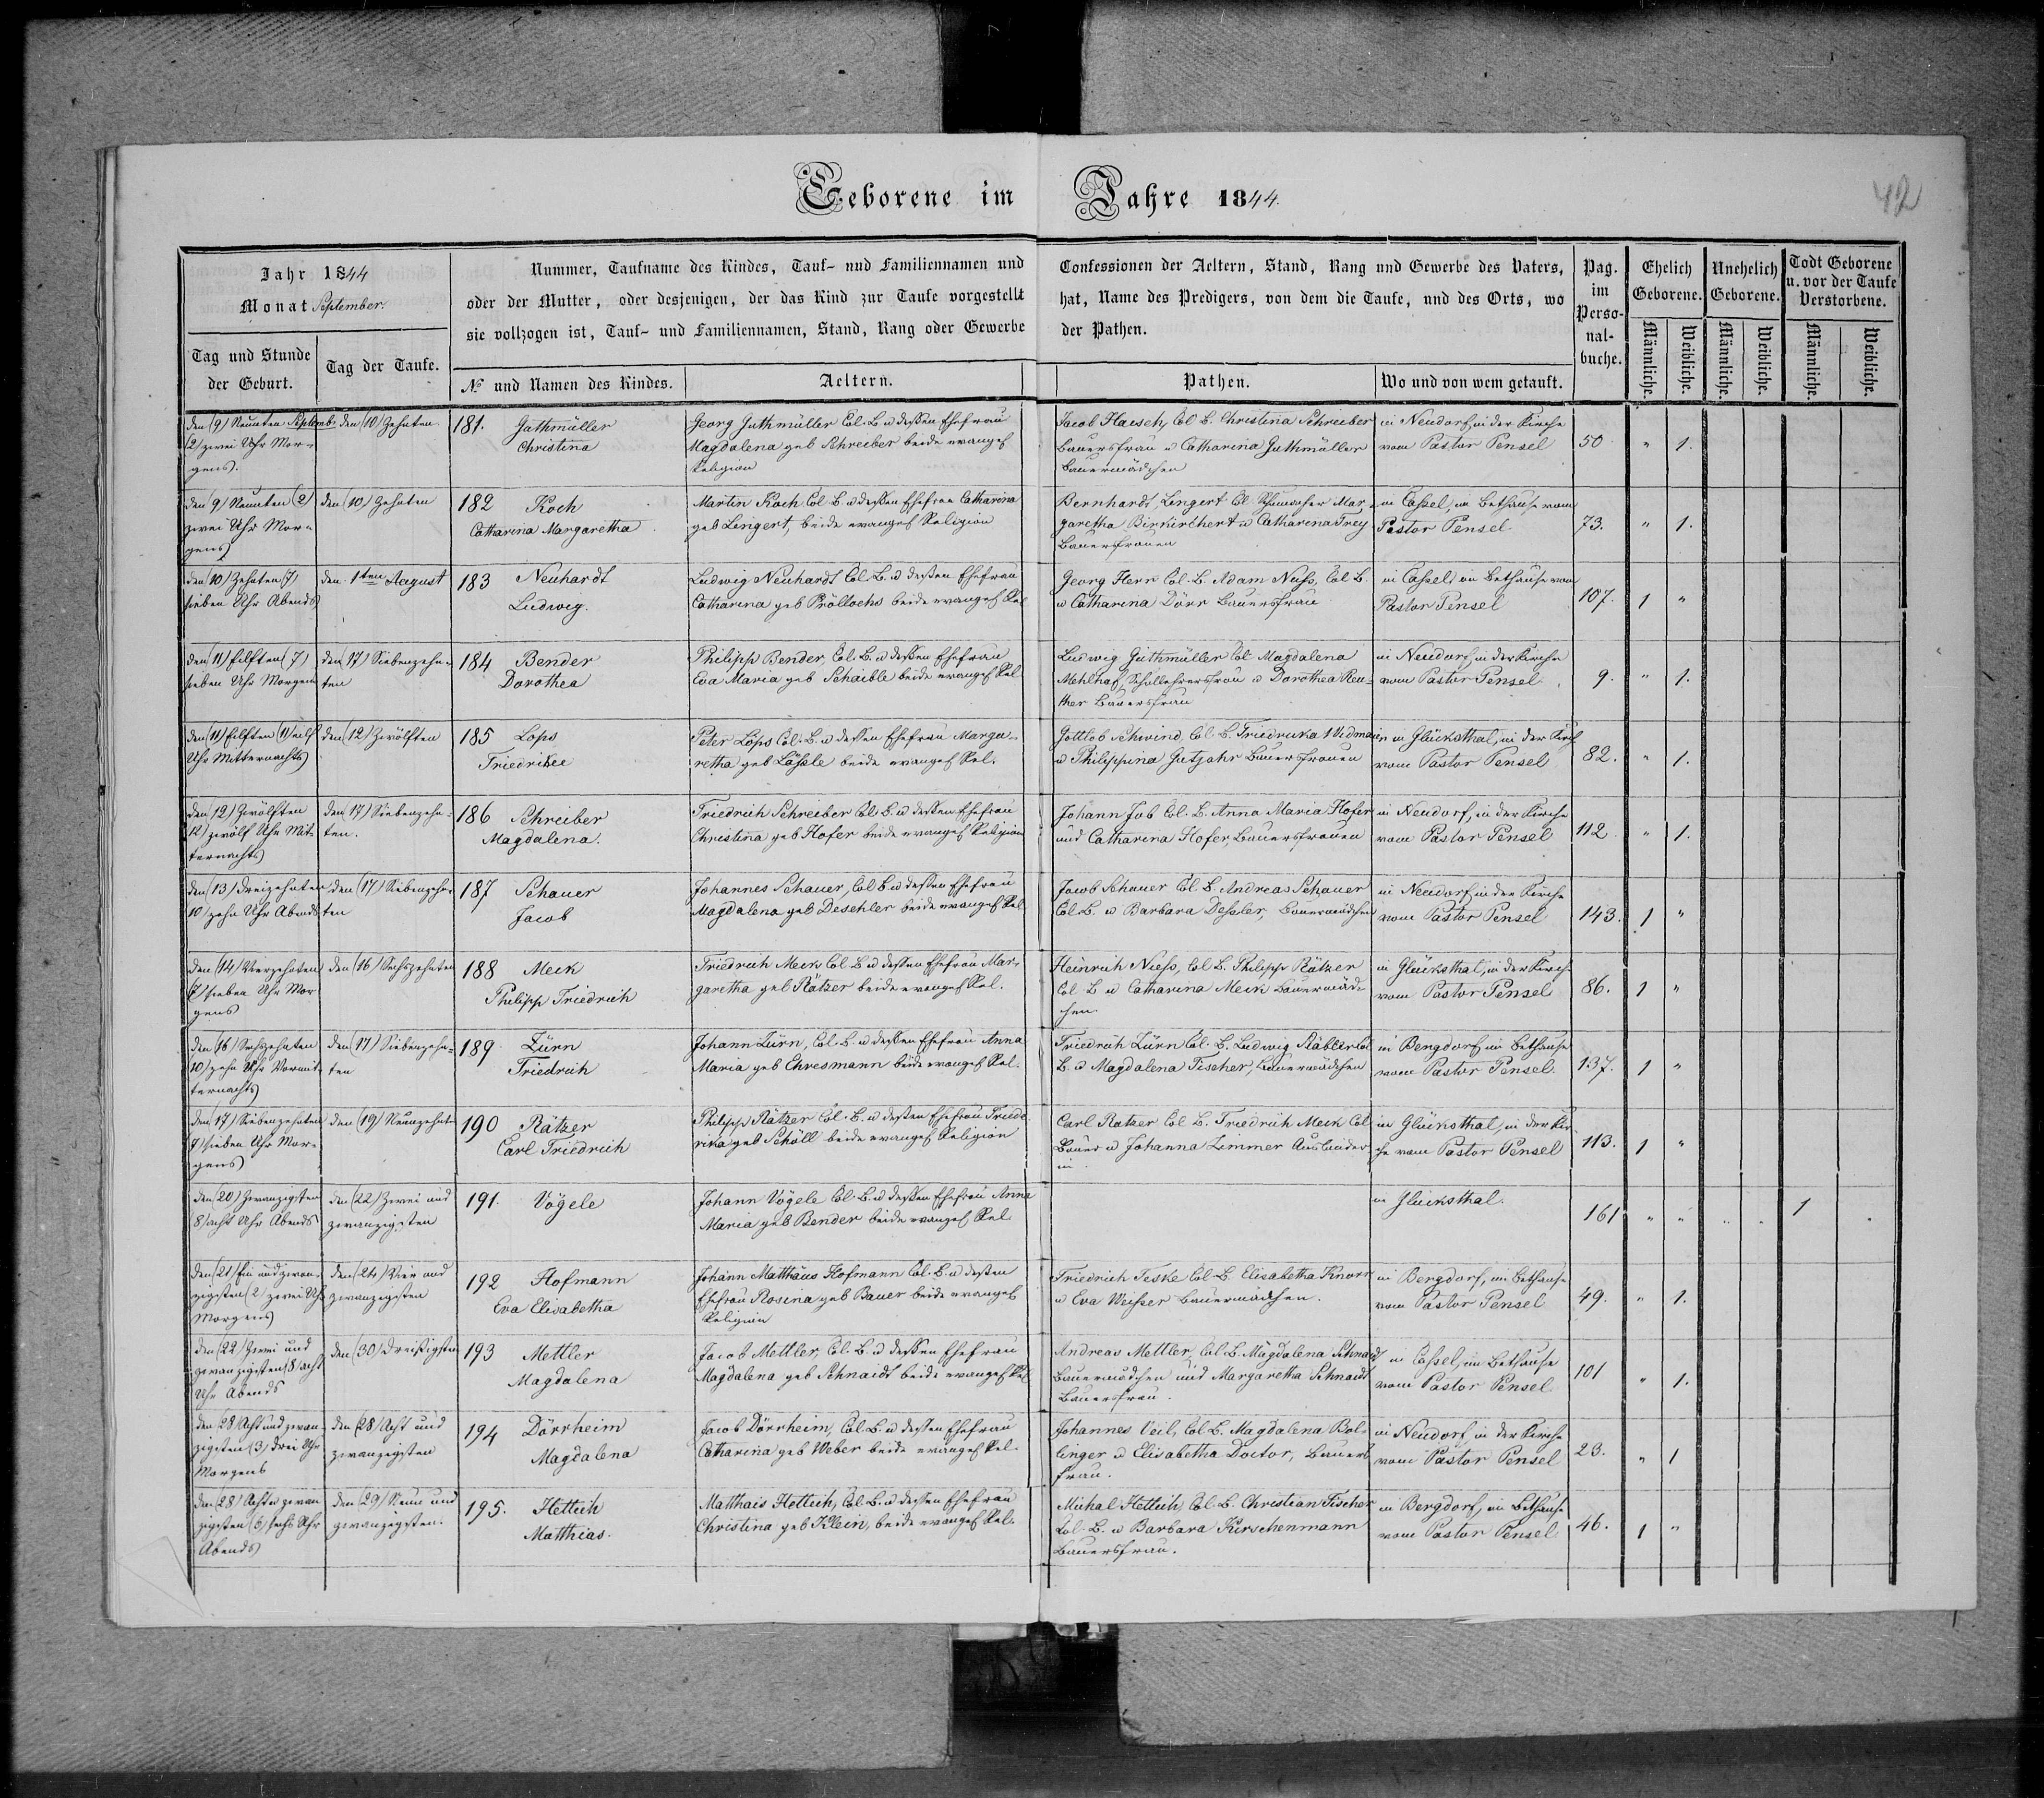 Geborene im Jahre 1844.
42
Jahr 1844
Monat September.
Tag und Stunde der Geburt.
Tag der Taufe.
Nummer, Taufname des Kindes, Tauf- und Familiennamen und
oder der Mutter, oder desjenigen, der das Kind zur Taufe vorgestellt
sie vollzogen ist, Tauf- und Familiennamen, Stand, Rang oder Gewerbe
No und Namen des Kindes.
Aeltern.
Confessionen der Aeltern, Stand, Rang und Gewerbe des Vaters,
hat, Name des Predigers, von dem die Taufe, und des Orts, wo
der Pathen.
Pathen.
Wo und von wem getauft.
Pag. im Perso-nal-buche.
Ehelich Geborene.
Unehelich Geborene.
Todt Geborene u. vor der Taufe Verstorbene.
Männliche. Weibliche. Männliche. Weibliche. Männliche. Weibliche.
den (9) Neunten Septemb.
2) zwei Uhr Mor-
gens.
den (10) Zehnten
181. Gathmüller
Christina
Georg Guthmüller Col. B. u dessen Ehefrau
Magdalena geb Schreiber beide evangel
Religion
Jacob Haesch, Col B. Christina Schreiber
Bauersfrau u Catharina Guthmüller
Bauermädchen
in Neudorf, in der Kirche
vom Pastor Pensel
50 " 1.
den 9) Neunten (2)
zwei Uhr Mor-
gens)
den (10) Zehnten
182 Koch
Catharina Margaretha
Martin Koch Col B. u dessen Ehefrau Catharina
geb Lingert, beide evangel Religion
Bernhardt Lingert Col Mar-
garetha Birkirbhert u Catharina Frey
Bauersfrauen
in Cassel, im Bethause vom
Pastor Pensel
73. " 1.
den (10) Zehnten (7)
sieben Uhr Abends
den 1ten August
183 Neuhardt
Ludwig.
Ludwig Neuhardt Col. B. u dessen Ehefrau
Catharina geb Pröllochs beide evangel Rel
Georg Herr Col. B. Adam Nuss, Col B.
u Catharina Dörr Bauersfrau
in Cassel, im Bethause vom
Pastor Pensel
107. 1 "
den (11) Eilften (7)
sieben Uhr Morgens
den (17) Siebenzehn-
ten
184 Bender
Dorothea
Philipp Bender, Col. B. u dessen Ehefrau
Eva Maria geb Schaible beide evangel Rel
Ludwig Guthmüller Col Magdalena
Mehlhaf, Schullehrersfrau u Dorothea Reu-
ther Bauersfrau
in Neudorf, in der Kirche
vom Pastor Pensel
9. " 1.
den (11) Eilften (11) eilf
Uhr Mitternachts)
den (12) Zwölften
185 Lops
Friedrike
Peter Lops Col. B. u dessen Ehefrau Marga-
retha geb Lässle beide evangel Rel.
Gottlob Schwind Col B. Friedricka Widmaier
u Philippina Gutjahr Bauersfrauen
in Glücksthal, in der Kirche
vom Pastor Pensel
82. " 1.
den (12) Zwölften
12) zwölf Uhr Mit-
ternachts)
den (17) Siebenzehn-
ten.
186 Schreiber
Magdalena.
Friedrich Schreiber Col. B. u dessen Ehefrau
Christina geb Hofer beide evangel Religion
Johann Job Col. B. Anna Maria Hofer
und Catharina Hofer, Bauersfrauen
in Neudorf, in der Kirche
vom Pastor Pensel
112. " 1.
den (13) Dreizehnten
10) zehn Uhr Abends
den (17) Siebenzehn-
ten
187 Schauer
Jacob
Johannes Schauer, Col B u dessen Ehefrau
Magdalena geb Deschler beide evangel Rel
Jacob Schauer Col B. Andreas Schauer
Col. B. u Barbara Dessler, Bauermädchen
in Neudorf, in der Kirche
vom Pastor Pensel
143. 1 "
den (14) Vierzehnten
7) sieben Uhr Mor
gens)
den (16) Sechszehnten
188 Meck
Philipp Friedrich
Friedrich Meck Col. B u dessen Ehefrau Mar-
garetha geb Rätzer beide evangel Rel.
Heinrich Niess, Col B. Philipp Rätzer
Col B u Catharina Meck Bauermäd-
chen.
in Glücksthal, in der Kirche
vom Pastor Pensel
86. 1 "
den (16) Sechszehnten
10) zehn Uhr Vormit-
ternachts)
den (17) Siebenzehn-
ten
189 Zürn
Friedrich
Johann Zürn, Col. B u dessen Ehefrau Anna
Maria geb Ehresmann beide evangel Rel.
Friedrich Zürn Col. B. Ludwig Stäbler Col
B. u Magdalena Fischer, Bauermädchen
in Bergdorf, im Bethause
vom Pastor Pensel.
137. 1 "
den (17) Siebenzehnten
7) sieben Uhr Mor-
gens)
den (19) Neunzehnt
190 Rätzer
Carl Friedrich
Philipp Rätzer Col. B. u dessen Ehefrau Friede
rika geb Schöll beide evangel Religion
Carl Ratzer Col B. Friedrich Meck Col
Bauer u Johanna Zimmer Auslander
in.
in Glücksthal, in der Kir-
che vom Pastor Pensel
113. 1 "
den (20) Zwanzigsten
8) acht Uhr Abends
den (22) Zwei und
zwanzigsten
191. Vögele
Johann Vögele Col. B. u dessen Ehefrau Anna
Maria geb Bender beide evangel Rel.
in Glücksthal.
161 " " " " 1 "
den (21) Ein und zwan-
zigsten (2) zwei Uhr
Morgens)
den (24) Vier und
zwanzigsten
192 Hofmann
Eva Elisabetha
Johann Matthäus Hofmann Col. B. u dessen
Ehefrau Rosina geb Bauer beide evangel
Religion
Friedrich Teske Col B. Elisabetha Knorr
u Eva Weisser Bauermädchen.
in Bergdorf, im Bethause
vom Pastor Pensel
49. " 1.
den (22) Zwei und
zwanzigsten (8) acht
Uhr Abends
den (30) Dreißigsten
193 Mettler
Magdalena
Jacob Mettler, Col. B. u dessen Ehefrau
Magdalena geb Schnaidt beide evangel Rel
Andreas Mettler, Col B. Magdalena Schnaidt
Bauermädchen und Margaretha Schnaidt
Bauersfrau.
in Cassel, im Bethause
vom Pastor Pensel
101 " 1.
den (28) Acht und zwan
zigsten (3) drei Uhr
Morgens
den (28) Acht und
zwanzigsten
194 Dörrheim
Magdalena
Jacob Dörrheim, Col. B. u dessen Ehefrau
Catharina geb Weber beide evangel Rel.
Johannes Veil, Col B. Magdalena Bol-
linger u Elisabetha Doctor, Bauers
frau.
in Neudorf in der Kirche
vom Pastor Pensel
23. " 1
den (28) Acht u zwan
zigsten (6) sechs Uhr
Abends)
den (29) Neun und
zwanzigsten.
195. Hettich
Matthias.
Matthais Hettich, Col. B. u dessen Ehefrau
Christina geb Klein, beide evangel Rel.
Michal Hettich, Col. B. Christian Fischer
Col. B. u Barbara Kirschenmann
Bauersfrau.
in Bergdorf, im Bethause
vom Pastor Pensel
46. 1 "